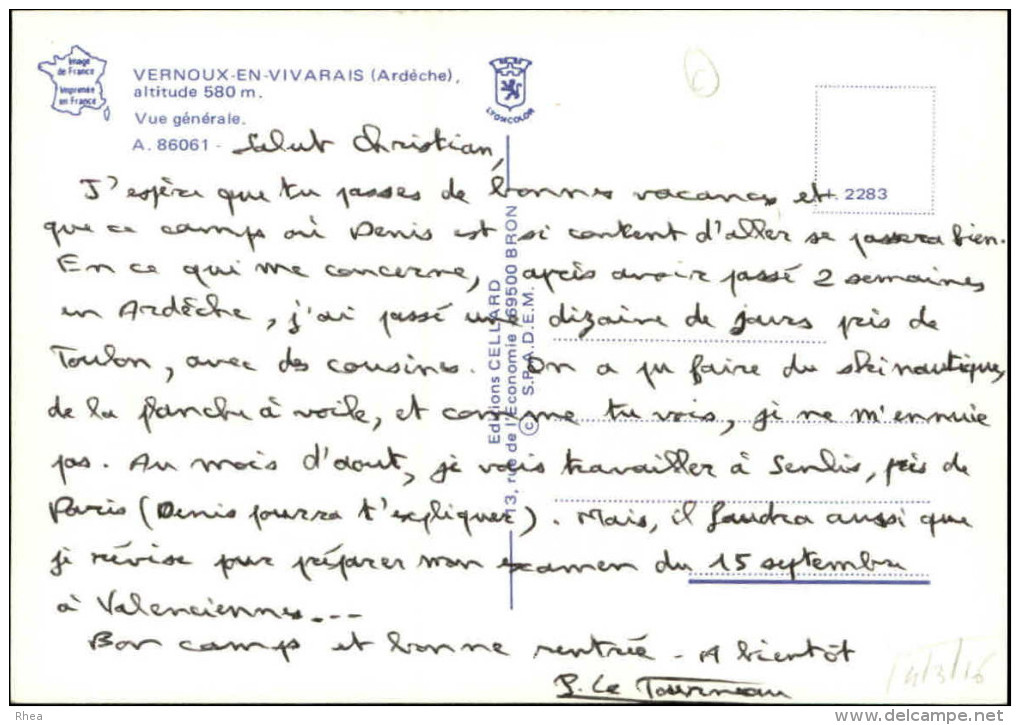 Image
de France
Imprimée
en France
VERNOUX-EN-VIVARAIS (Ardèche),
altitude 580 m.
Vue générale.
A. 86061 -
LYONCOLOR
2283
Editions CELLARD
13, rue de l'Economie 69500 BRON
© S.P.A.D.E.M.
Salut Christian,
J'espère que tu passes de bonnes vacances et
que ce camp où Denis est si content d'aller se passera bien.
En ce qui me concerne, après avoir passé 2 semaines
en Ardèche, j'ai passé une dizaine de jours près de
Toulon, avec des cousines. On a pu faire du ski nautique,
de la planche à voile, et comme tu vois, je ne m'ennuie
pas. Au mois d'aout, je vais travailler à Senlis, près de
Paris (Denis pourra t'expliquer). Mais, il faudra aussi que
je révise pour préparer mon examen du 15 septembre
à Valenciennes...
Bon camp et bonne rentrée - A bientôt
P. Le Tourneau
Rhea
www.delcampe.net